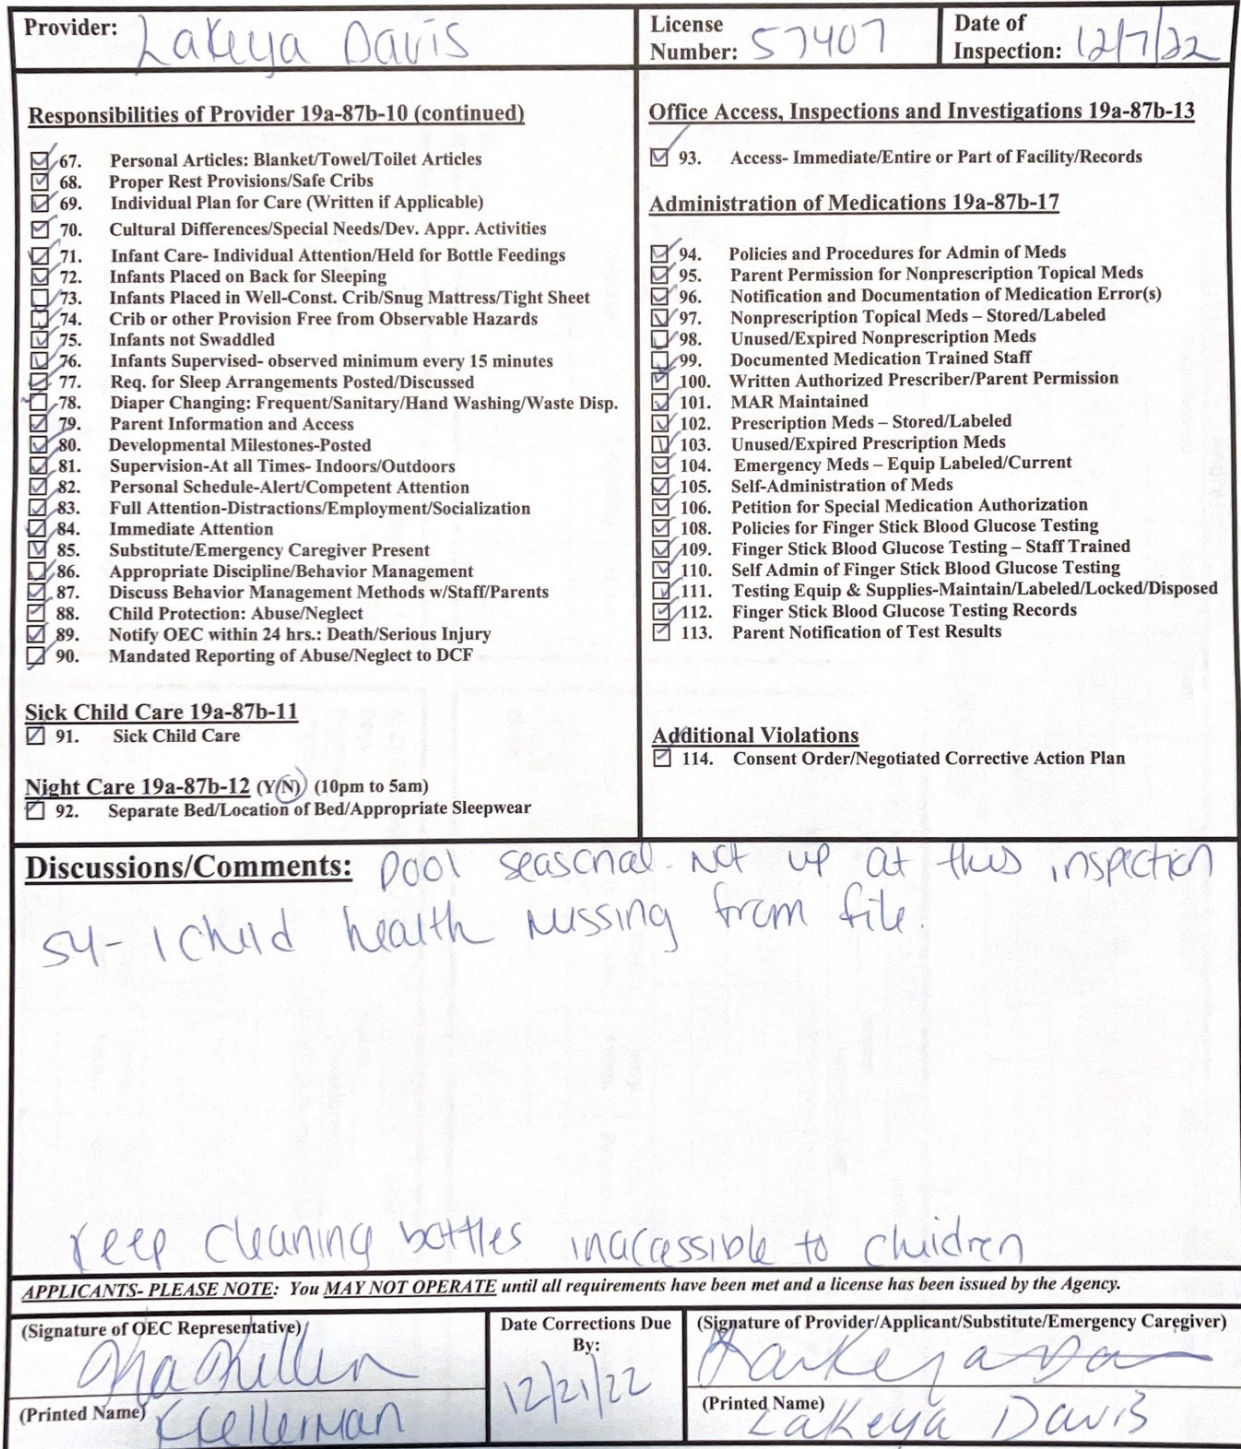 Provider: Lakeya Davis
License Number: 57407
Date of Inspection: 12/7/22
Responsibilities of Provider 19a-87b-10 (continued)
67. Personal Articles: Blanket/Towel/Toilet Articles
68. Proper Rest Provisions/Safe Cribs
69. Individual Plan for Care (Written if Applicable)
70. Cultural Differences/Special Needs/Dev. Appr. Activities
71. Infant Care- Individual Attention/Held for Bottle Feedings
72. Infants Placed on Back for Sleeping
73. Infants Placed in Well-Const. Crib/Snug Mattress/Tight Sheet
74. Crib or other Provision Free from Observable Hazards
75. Infants not Swaddled
76. Infants Supervised- observed minimum every 15 minutes
77. Req. for Sleep Arrangements Posted/Discussed
78. Diaper Changing: Frequent/Sanitary/Hand Washing/Waste Disp.
79. Parent Information and Access
80. Developmental Milestones-Posted
81. Supervision-At all Times- Indoors/Outdoors
82. Personal Schedule-Alert/Competent Attention
83. Full Attention-Distractions/Employment/Socialization
84. Immediate Attention
85. Substitute/Emergency Caregiver Present
86. Appropriate Discipline/Behavior Management
87. Discuss Behavior Management Methods w/Staff/Parents
88. Child Protection: Abuse/Neglect
89. Notify OEC within 24 hrs.: Death/Serious Injury
90. Mandated Reporting of Abuse/Neglect to DCF
Sick Child Care 19a-87b-11
91. Sick Child Care
Night Care 19a-87b-12 (Y/N) (10pm to 5am)
92. Separate Bed/Location of Bed/Appropriate Sleepwear
Office Access, Inspections and Investigations 19a-87b-13
93. Access- Immediate/Entire or Part of Facility/Records
Administration of Medications 19a-87b-17
94. Policies and Procedures for Admin of Meds
95. Parent Permission for Nonprescription Topical Meds
96. Notification and Documentation of Medication Error(s)
97. Nonprescription Topical Meds – Stored/Labeled
98. Unused/Expired Nonprescription Meds
99. Documented Medication Trained Staff
100. Written Authorized Prescriber/Parent Permission
101. MAR Maintained
102. Prescription Meds – Stored/Labeled
103. Unused/Expired Prescription Meds
104. Emergency Meds – Equip Labeled/Current
105. Self-Administration of Meds
106. Petition for Special Medication Authorization
108. Policies for Finger Stick Blood Glucose Testing
109. Finger Stick Blood Glucose Testing – Staff Trained
110. Self Admin of Finger Stick Blood Glucose Testing
111. Testing Equip & Supplies-Maintain/Labeled/Locked/Disposed
112. Finger Stick Blood Glucose Testing Records
113. Parent Notification of Test Results
Additional Violations
114. Consent Order/Negotiated Corrective Action Plan
Discussions/Comments: Pool seasonal. Not up at this inspection
54- 1 child health missing from file.
Keep cleaning bottles inaccessible to children
APPLICANTS- PLEASE NOTE: You MAY NOT OPERATE until all requirements have been met and a license has been issued by the Agency.
(Signature of OEC Representative)
(Printed Name) K Kellerman
Date Corrections Due
By:
12/21/22
(Signature of Provider/Applicant/Substitute/Emergency Caregiver)
(Printed Name) Lakeya Davis